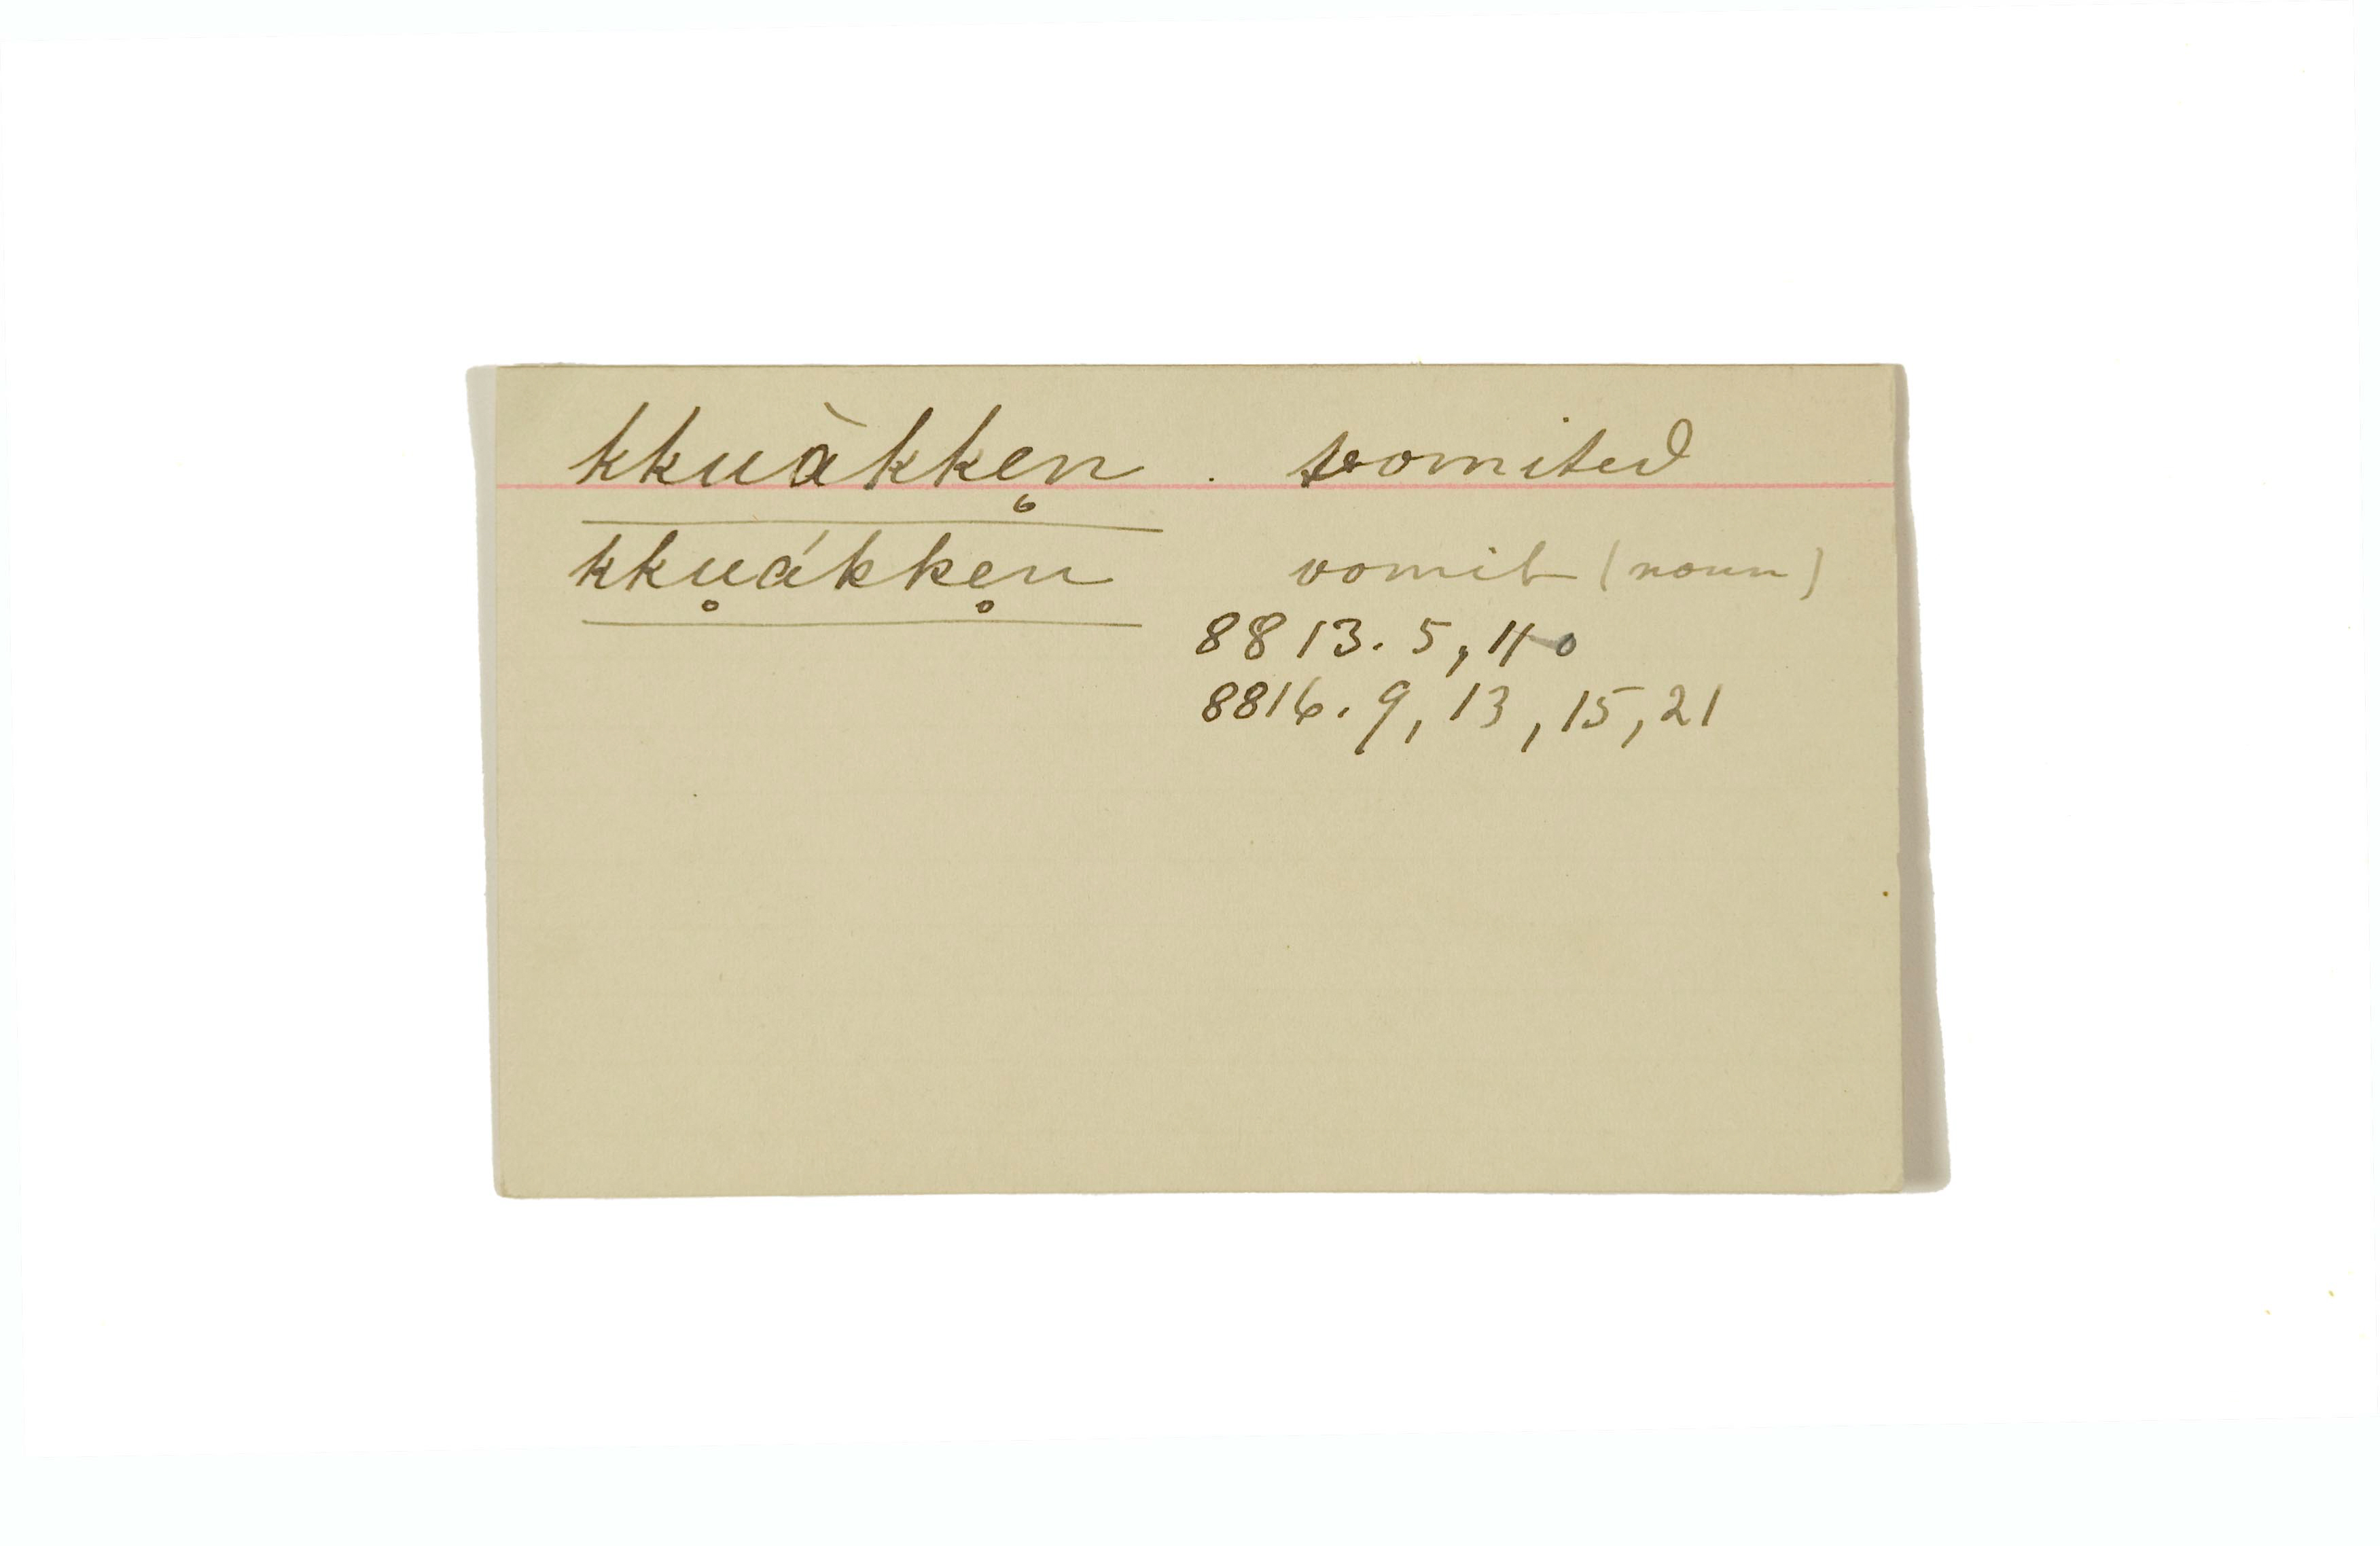 kkuàkke̥n . vomited
kku̥ákke̥n vomit (noun)
8813. 5, 40
8816. 9, 13, 15, 21